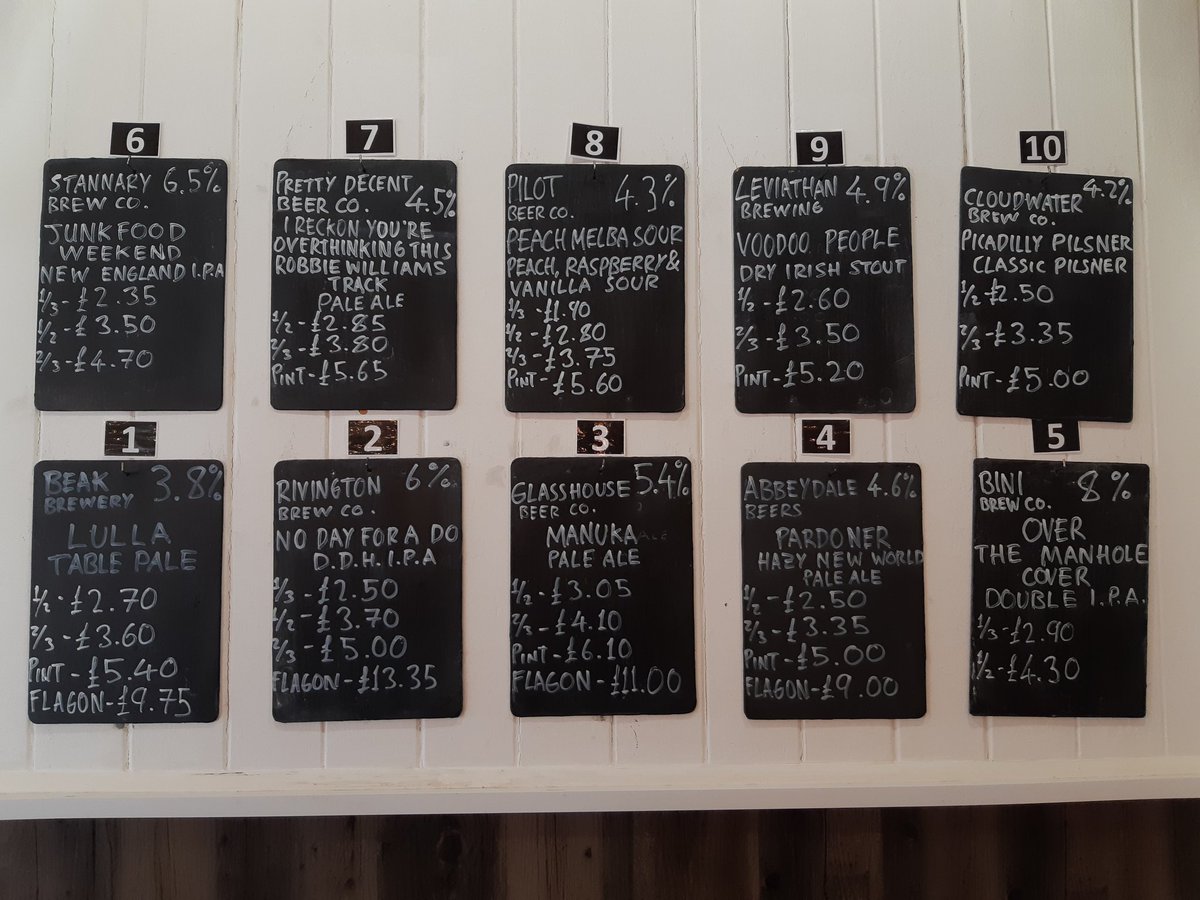 6
STANNARY 6.5%
BREW CO.
JUNKFOOD
WEEKEND
NEW ENGLAND I.P.A
1/3 - £2.35
1/2 - £3.50
2/3 - £4.70
7
PRETTY DECENT
BEER CO. 4.5%
I RECKON YOU'RE
OVERTHINKING THIS
ROBBIE WILLIAMS
TRACK
PALE ALE
1/2 - £2.85
2/3 - £3.80
PINT - £5.65
8
PILOT 4.3%
BEER CO.
PEACH MELBA SOUR
PEACH, RASPBERRY &
VANILLA SOUR
1/3 - £1.90
1/2 - £2.80
2/3 - £3.75
PINT - £5.60
9
LEVIATHAN 4.9%
BREWING
VOODOO PEOPLE
DRY IRISH STOUT
1/2 - £2.60
2/3 - £3.50
PINT - £5.20
10
CLOUDWATER 4.2%
BREW CO.
PICADILLY PILSNER
CLASSIC PILSNER
1/2 - £2.50
2/3 - £3.35
PINT - £5.00
1
BEAK 3.8%
BREWERY
LULLA
TABLE PALE
1/2 - £2.70
2/3 - £3.60
PINT - £5.40
FLAGON - £9.75
2
RIVINGTON 6%
BREW CO.
NO DAY FOR A DO
D.D.H. I.P.A
1/3 - £2.50
1/2 - £3.70
2/3 - £5.00
FLAGON - £13.35
3
GLASSHOUSE 5.4%
BEER CO.
MANUKA
PALE ALE
1/2 - £3.05
2/3 - £4.10
PINT - £6.10
FLAGON - £11.00
4
ABBEYDALE 4.6%
BEERS
PARDONER
HAZY NEW WORLD
PALE ALE
1/2 - £2.50
2/3 - £3.35
PINT - £5.00
FLAGON - £9.00
5
BINI 8%
BREW CO.
OVER
THE MANHOLE
COVER
DOUBLE I.P.A.
1/3 - £2.90
1/2 - £4.30